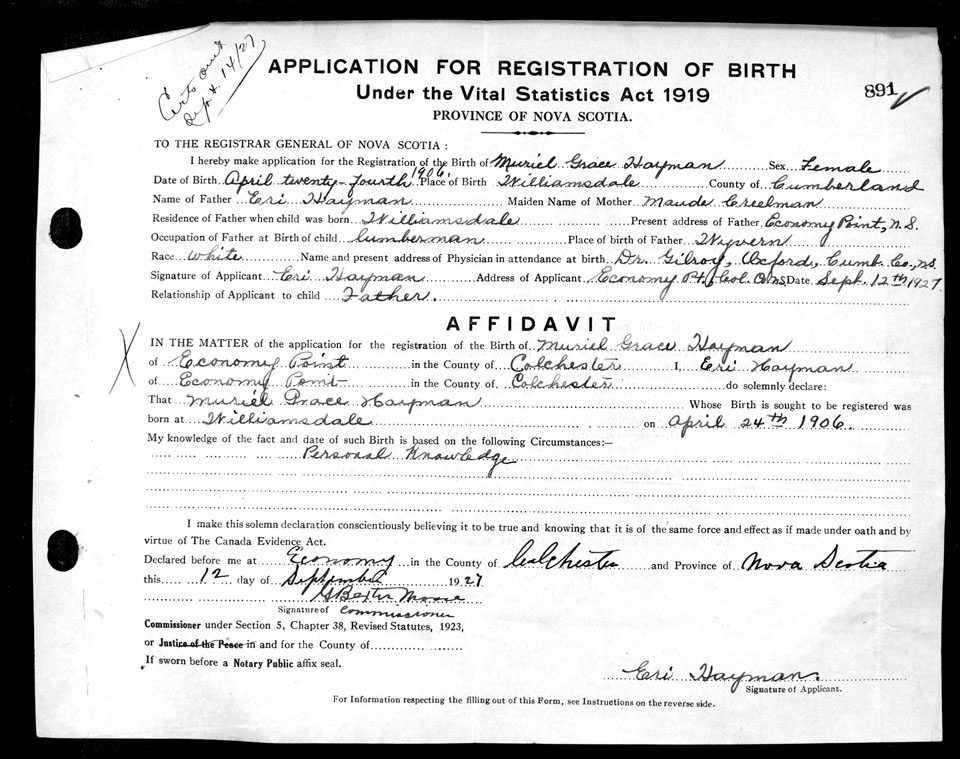 Certs out
Sept. 14/27
APPLICATION FOR REGISTRATION OF BIRTH
Under the Vital Statistics Act 1919
891
PROVINCE OF NOVA SCOTIA.
TO THE REGISTRAR GENERAL OF NOVA SCOTIA :
I hereby make application for the Registration of the Birth of Muriel Grace Hayman Sex Female
Date of Birth April twenty-fourth 1906. Place of Birth Williamsdale County of Cumberland
Name of Father Eri Hayman Maiden Name of Mother Maude Creelman
Residence of Father when child was born Williamsdale Present address of Father Economy Point, N.S.
Occupation of Father at Birth of child lumberman Place of birth of Father Wyvern
Race White Name and present address of Physician in attendance at birth Dr. Gilroy, Oxford, Cumb. Co., N.S.
Signature of Applicant Eri Hayman Address of Applicant Economy Pt., Col. Co. N.S. Date Sept. 12th 1927.
Relationship of Applicant to child Father.
AFFIDAVIT
IN THE MATTER of the application for the registration of the Birth of Muriel Grace Hayman
of Economy Point in the County of Colchester I, Eri Hayman
of Economy Point in the County of Colchester do solemnly declare:
That Muriel Grace Hayman Whose Birth is sought to be registered was
born at Williamsdale on April 24th 1906.
My knowledge of the fact and date of such Birth is based on the following Circumstances:—
Personal Knowledge
I make this solemn declaration conscientiously believing it to be true and knowing that it is of the same force and effect as if made under oath and by
virtue of The Canada Evidence Act.
Declared before me at Economy in the County of Colchester and Province of Nova Scotia
this 12 day of September 1927
Moore
Signature of Commissioner
Commissioner under Section 5, Chapter 38, Revised Statutes, 1923,
or Justice of the Peace in and for the County of
If sworn before a Notary Public affix seal.
Eri Hayman.
Signature of Applicant.
For Information respecting the filling out of this Form, see Instructions on the reverse side.